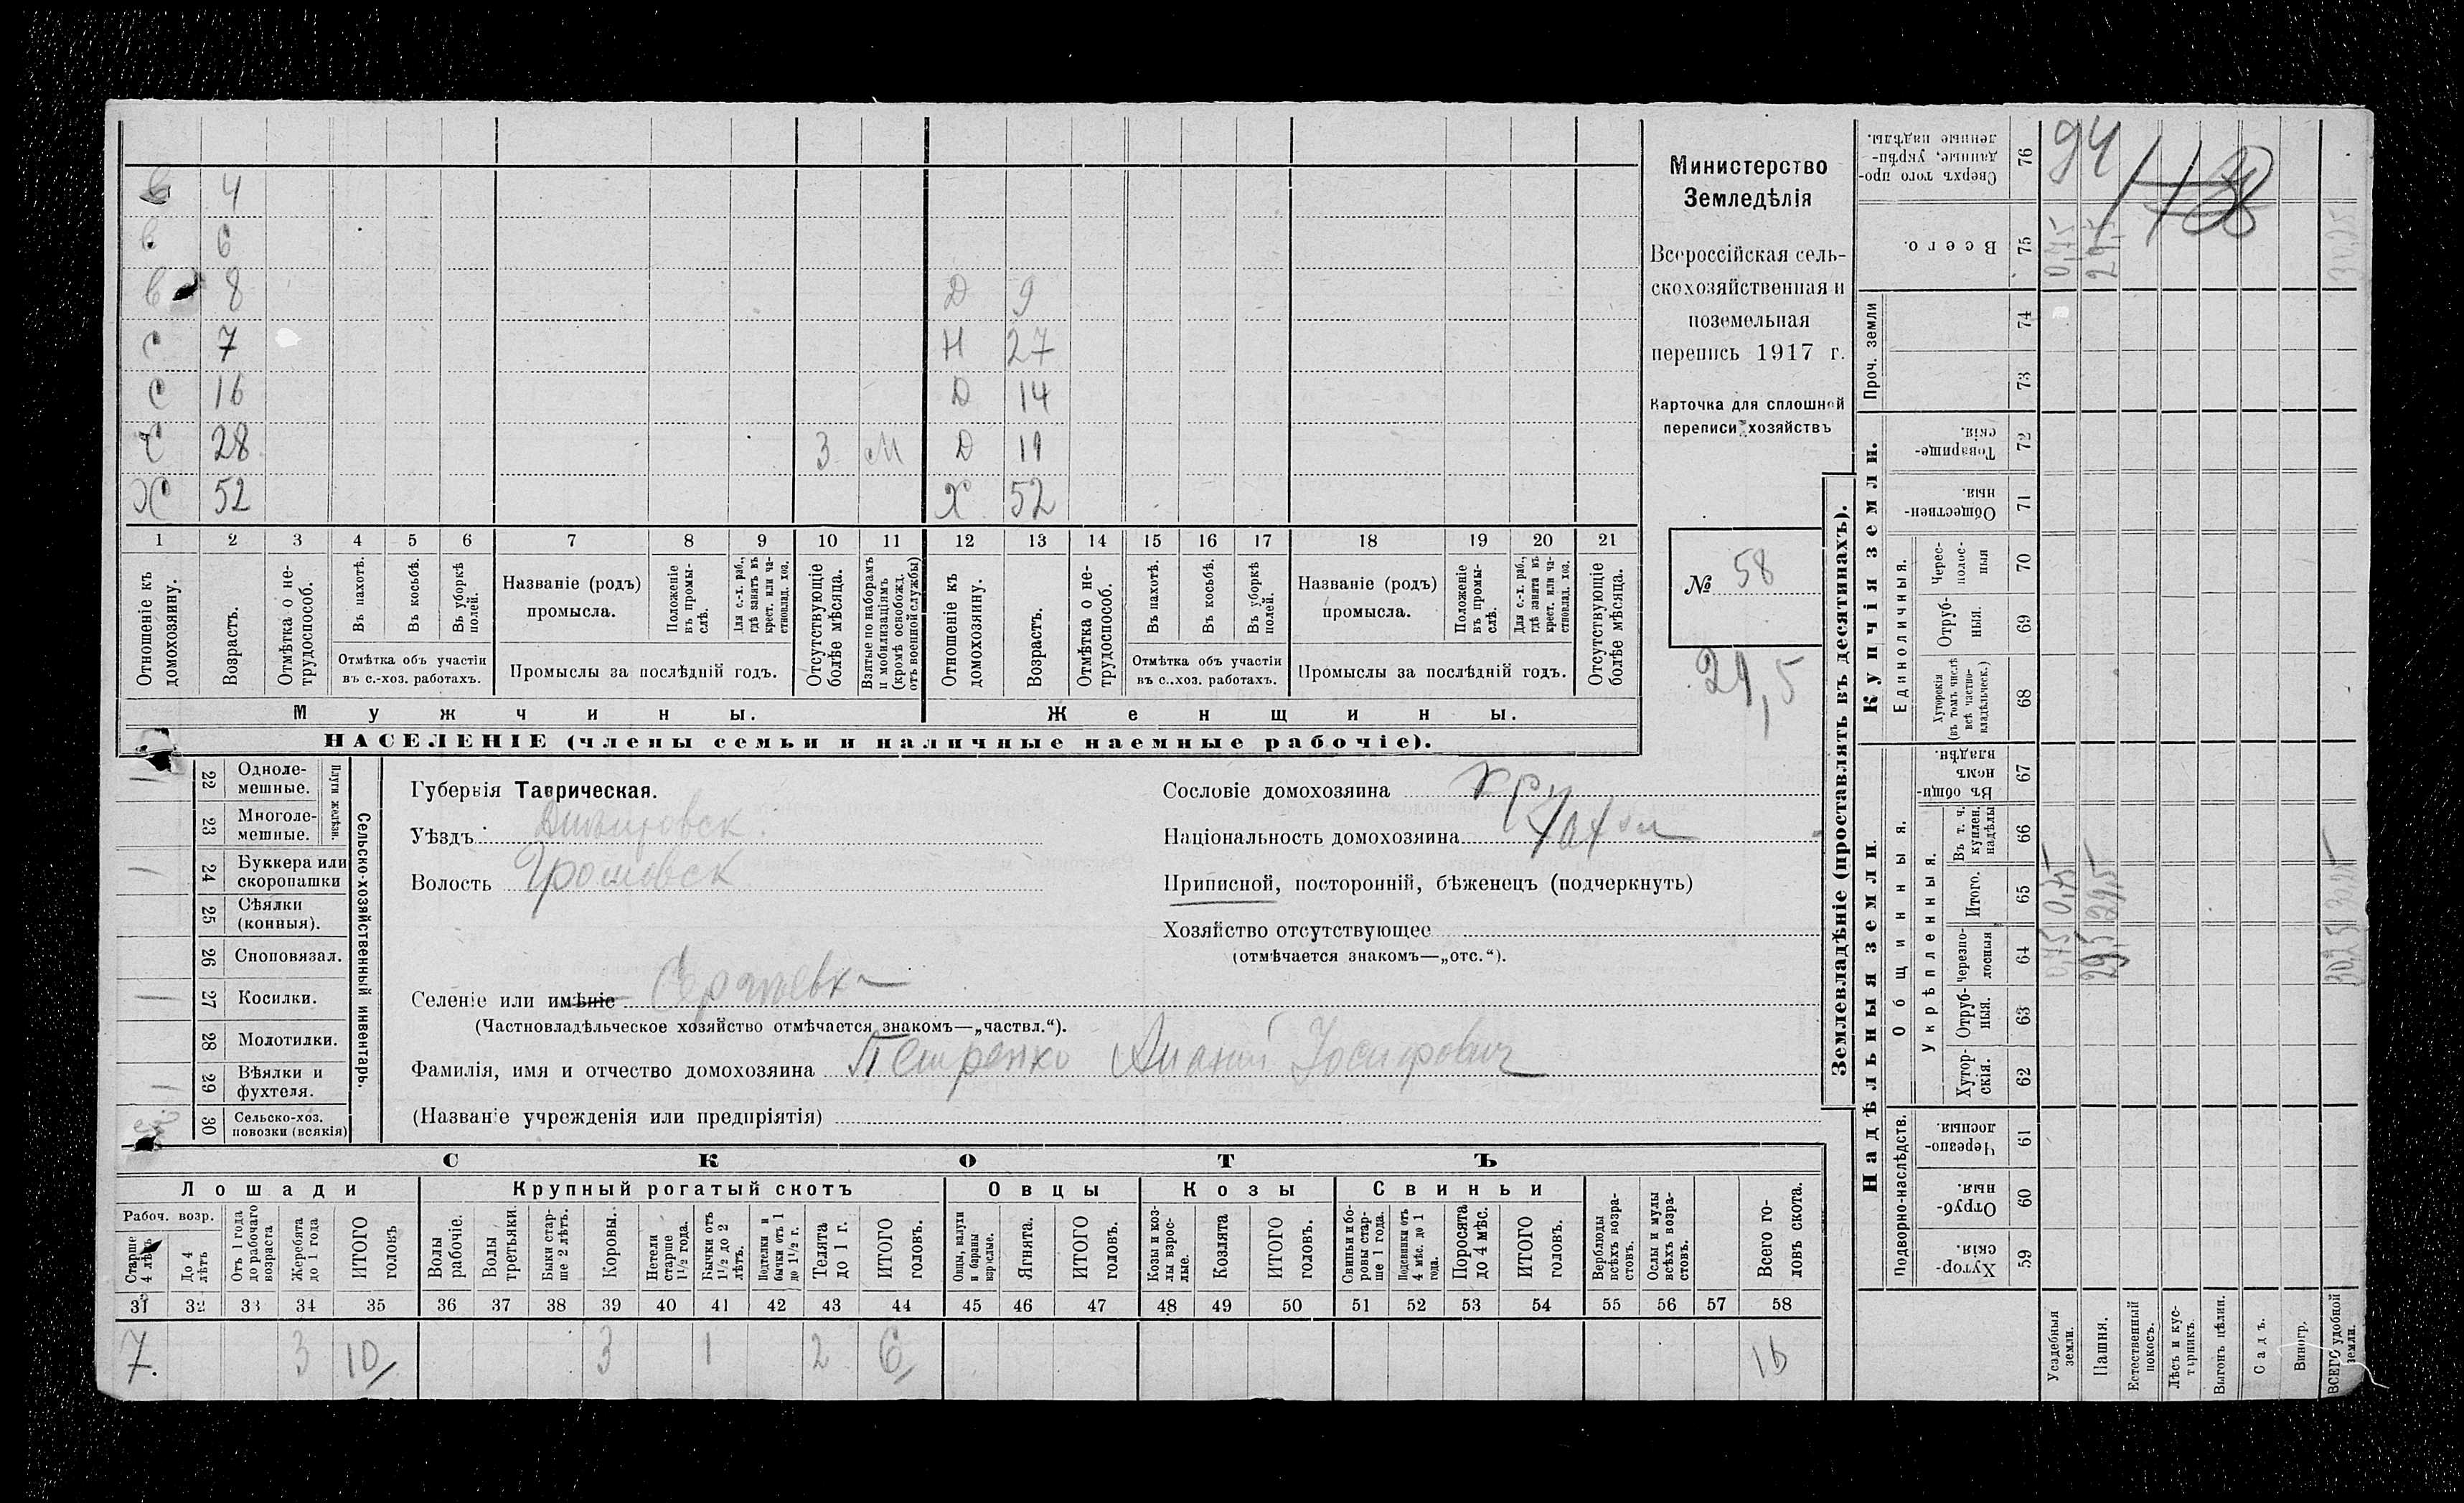 в 4
в 6
в 8 Д 9
С 7 Н 27
С 16 Д 14
С 28 3 М Д 11
Х 52 Х 52
1 2 3 4 5 6 7 8 9 10 11 12 13 14 15 16 17 18 19 20 21
Отношеніе къ домохозяину.
Возрастъ.
Отмѣтка о не-
трудоспособ.
Въ пахотѣ.
Въ косьбѣ.
Въ уборкѣ
полей.
Отмѣтка объ участіи
въ с.-хоз. работахъ.
Названіе (родъ)
промысла.
Положеніе
въ промы-
слѣ.
Для с.-х. раб.,
гдѣ занятъ въ
крест. или ча-
стновлад. хоз.
Промыслы за послѣдній годъ.
Отсутствующіе
болѣе мѣсяца.
Взятые по наборамъ
и мобилизаціямъ
(кромѣ освобожд.
отъ военной службы)
Отношеніе къ
домохозяину.
Возрастъ.
Отмѣтка о не-
трудоспособ.
Въ пахотѣ.
Въ косьбѣ.
Въ уборкѣ
полей.
Отмѣтка объ участіи
въ с..хоз. работахъ.
Названіе (родъ)
промысла.
Положеніе
въ промы-
слѣ.
Для с.-х. раб.,
гдѣ занятъ въ
крест. или ча-
стновлад. хоз.
Промыслы за послѣдній годъ.
Отсутствующіе
болѣе мѣсяца.
Мужчины. Женщины.
НАСЕЛЕНІЕ (члены семьи и наличные наемные рабочіе).
Министерство
Земледѣлія
Всероссійская сель-
скохозяйственная и
поземельная
перепись 1917 г.
Карточка для сплошной
переписи хозяйствъ
№ 58
29,5
22 Одноле-
мешные.
23 Многоле-
мешные.
Плуги желѣзн.
24 Буккера или
скоропашки
25 Сѣялки
(конныя).
26 Сноповязал.
27 Косилки.
28 Молотилки.
29 Вѣялки и
фухтеля.
30 Сельско-хоз.
повозки (всякія)
Сельско-хозяйственный инвентарь.
Губернія Таврическая.
Уѣздъ
Волость Громовск
Селеніе или имѣніе
(Частновладѣльческое хозяйство отмѣчается знакомъ—„частвл.“).
Фамилія, имя и отчество домохозяина Петренко Ананій Іосифович
(Названіе учрежденія или предпріятія)
Сословіе домохозяина кр.
Національность домохозяина
Приписной, посторонній, бѣженецъ (подчеркнуть)
Хозяйство отсутствующее
(отмѣчается знакомъ—„отс.“).
СКОТЪ
Лошади Крупный рогатый скотъ Овцы Козы Свиньи
Рабоч. возр.
Старше
4 лѣтъ
До 4
лѣтъ
Отъ 1 года
до рабочаго
возраста
Жеребята
до 1 года
ИТОГО
головъ
Волы
рабочіе.
Волы
третьяки.
Быки стар-
ше 2 лѣтъ.
Коровы.
Нетели
старше
1½ года.
Бычки отъ
1½ до 2
лѣтъ.
Подтелки и
бычки отъ 1
до 1½ г.
Телята
до 1 г.
ИТОГО
головъ.
Овцы, валухи
и бараны
взрослые.
Ягнята.
ИТОГО
головъ.
Козы и коз-
лы взрос-
лые.
Козлята
ИТОГО
головъ.
Свиньи и бо-
ровы стар-
ше 1 года.
Подсвинки отъ
4 мѣс. до 1
года.
Поросята
до 4 мѣс.
ИТОГО
головъ.
Верблюды
всѣхъ возра-
стовъ.
Ослы и мулы
всѣхъ возра-
стовъ.
Всего го-
ловъ скота.
31 32 33 34 35 36 37 38 39 40 41 42 43 44 45 46 47 48 49 50 51 52 53 54 55 56 57 58
7 3 10 3 1 2 6 16
Землевладѣніе (проставлять въ десятинахъ).
Надѣльныя земли. Купчія земли. Проч. земли
Подворно-наслѣдств.
Общинныя.
Укрѣпленныя.
Единоличныя.
Хутор-
скія. 59
Отруб-
ныя. 60
Черезпо-
лосныя. 61
Хутор-
скія. 62
Отруб-
ныя. 63
Черезпо-
лосныя 64
Итого. 65
Въ т. ч.
куплен.
надѣлы 66
Въ общи-
номъ
владѣн. 67
Хуторскія
(въ томъ числѣ
всѣ частно-
владѣльческ.) 68
Отруб-
ныя. 69
Черес-
полос-
ныя 70
Обществен-
ныя. 71
Товарище-
скія. 72
73
74
Всего. 75
Сверхъ того про-
данные, укрѣп-
ленные надѣлы. 76
Усадебныя
земли.
0,75 0,75 0,75
Пашня.
29,5 29,5 29,5
94
Естественный
покосъ.
Лѣсъ и кус-
тарникъ.
Выгонъ цѣлин.
Садъ.
Виногр.
ВСЕГО удобной
земли.
30,25 30,25 30,25